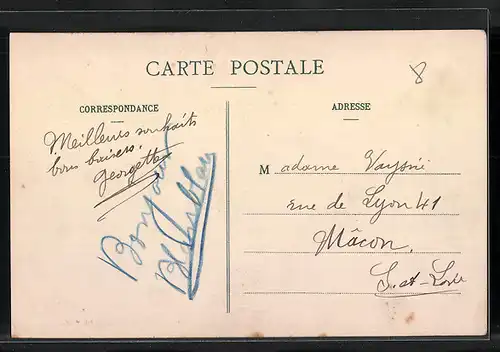 CARTE POSTALE
8
CORRESPONDANCE
Meilleurs souhaits
bons baisers.
Georgette
Bonjour
ADRESSE
Madame Vayssié
rue de Lyon 41
Mâcon.
S. et-Loire